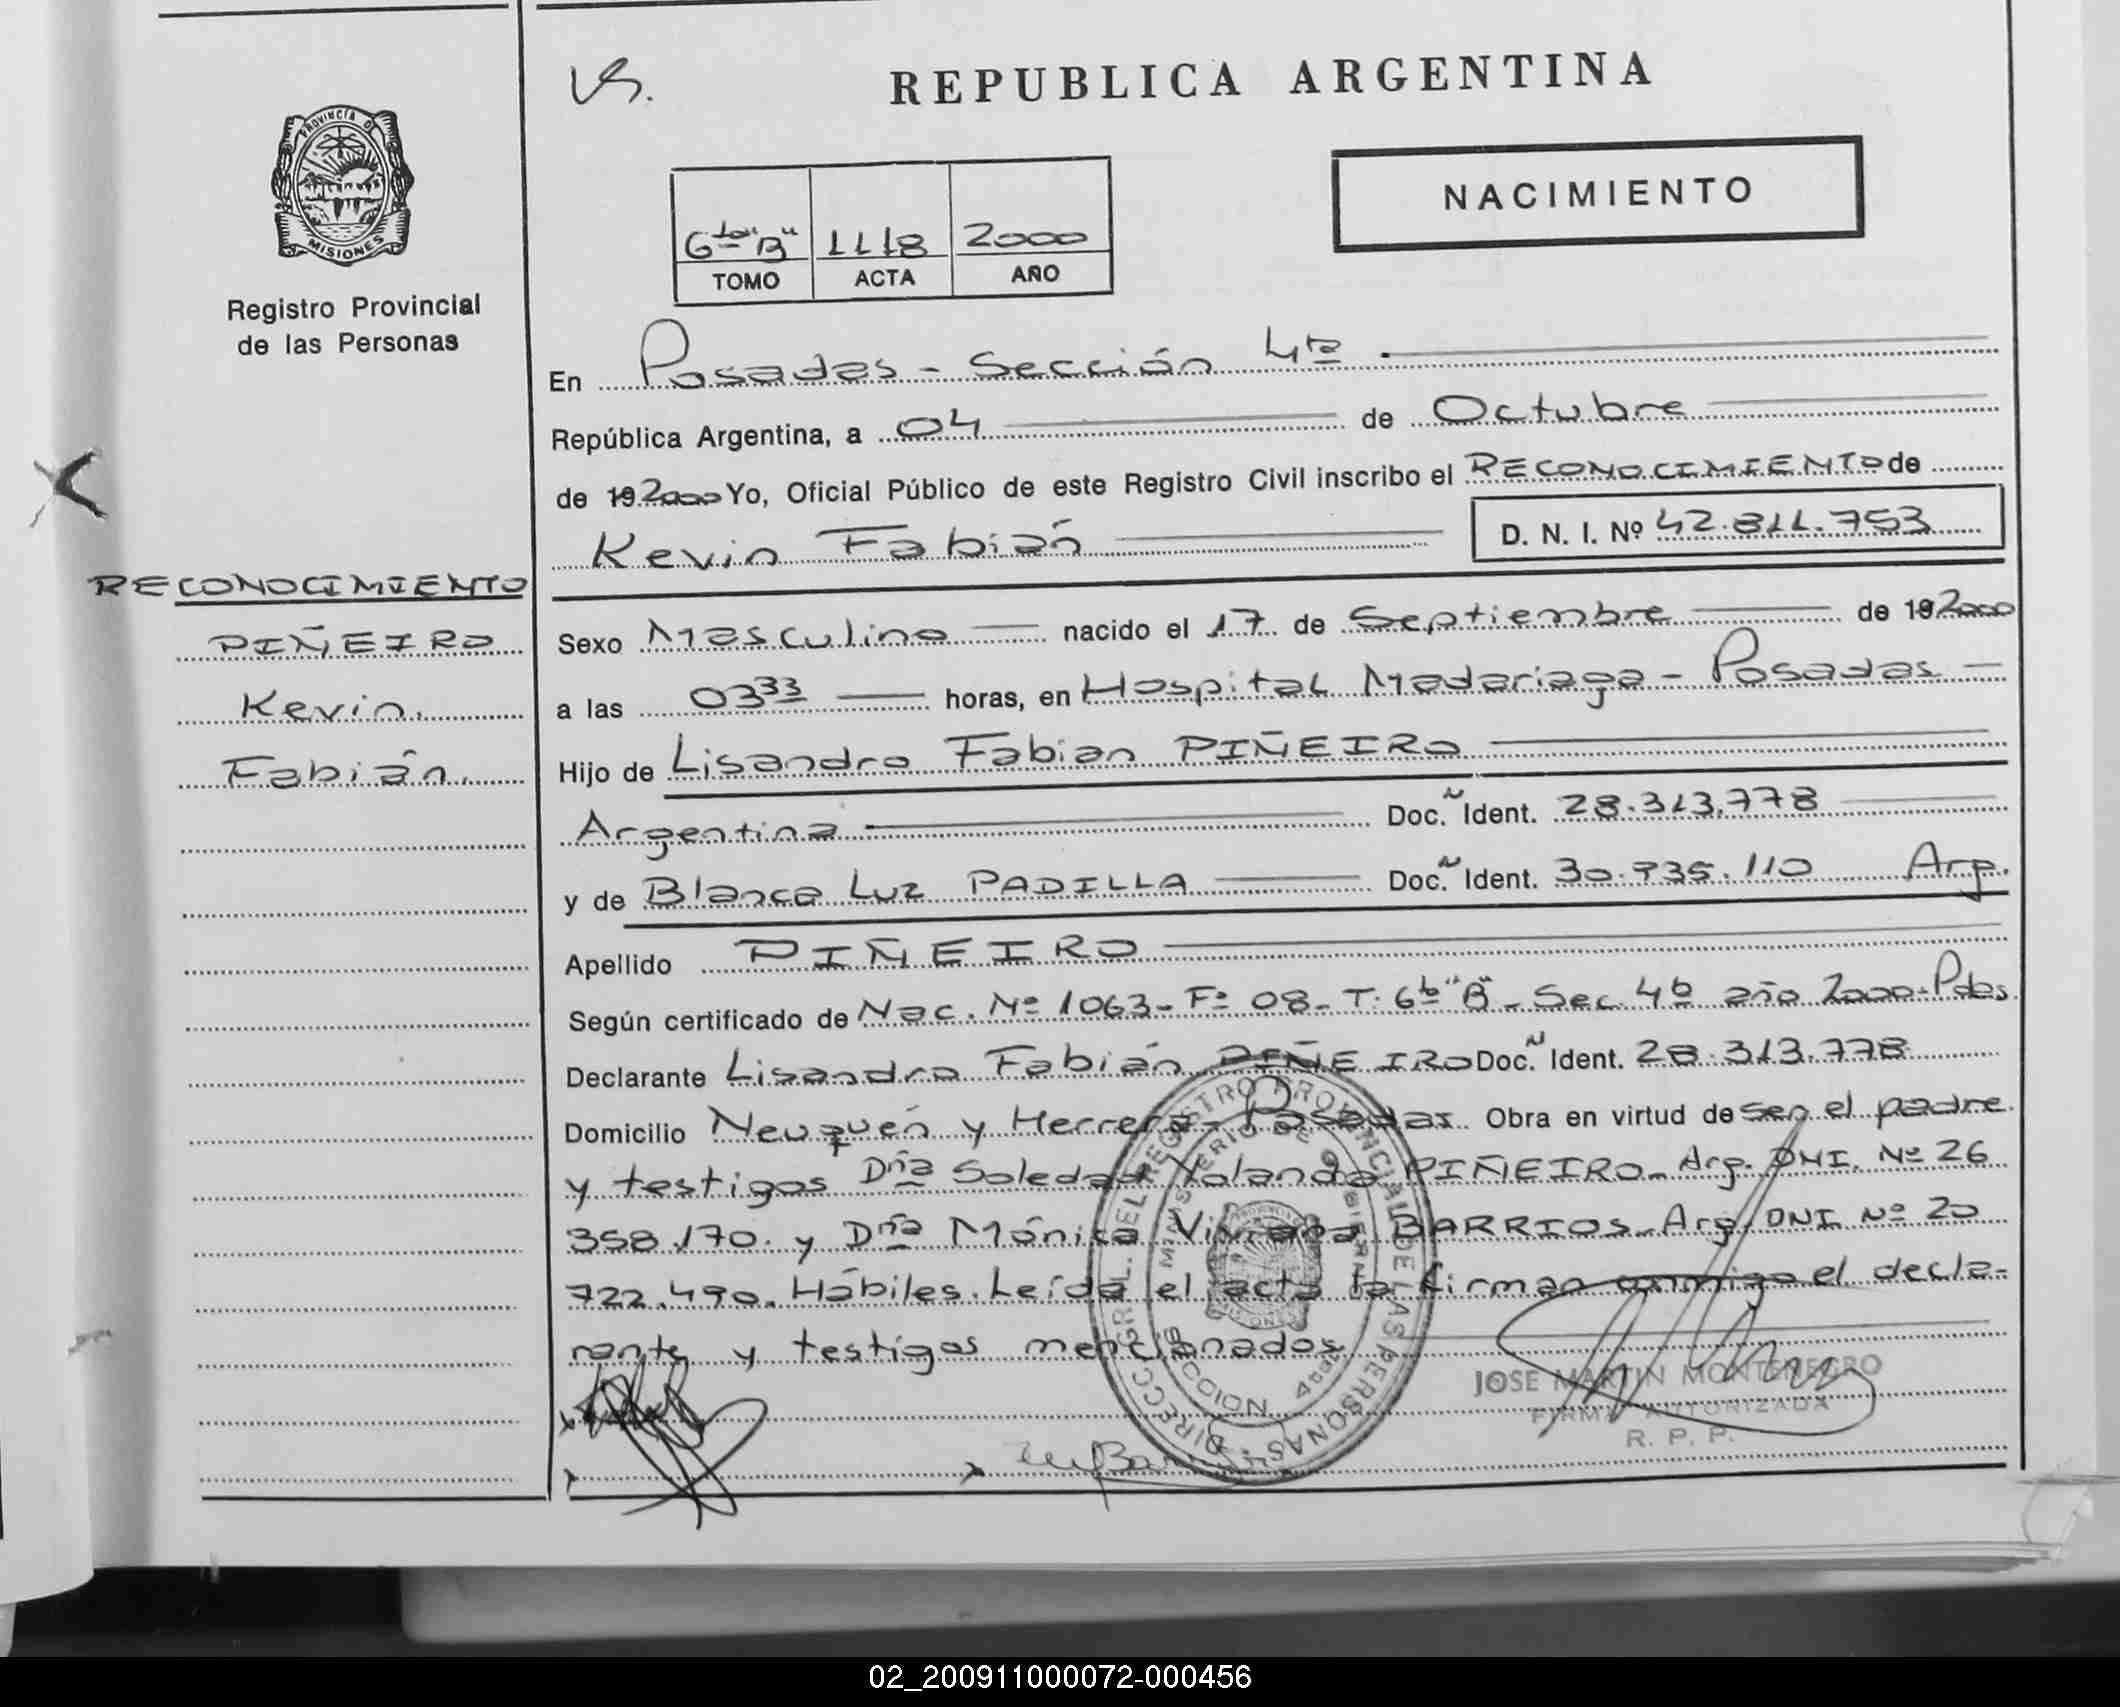 VS.
REPUBLICA ARGENTINA
PROVINCIA DE
MISIONES
Registro Provincial
de las Personas
NACIMIENTO
6to "B" 1118 2000
TOMO ACTA AÑO
En Posadas - Sección 4ta.
República Argentina, a 04 de Octubre
de 19 2000 Yo, Oficial Público de este Registro Civil inscribo el RECONOCIMIENTO de
Kevin Fabián D. N. I. Nº 42.811.753
RECONOCIMIENTO
PIÑEIRO
Kevin
Fabián
Sexo Masculino nacido el 17 de Septiembre de 19 2000
a las 03 33 horas, en Hospital Madariaga - Posadas
Hijo de Lisandro Fabian PIÑEIRO
Argentina Doc. Ident. 28.313.778
y de Blanca Luz PADILLA Doc. Ident. 30.735.110 Arg.
Apellido PIÑEIRO
Según certificado de Nac. Nº 1063 - Fº 08 - T. 6to "B" - Sec. 4ta año 2000 - Pdas.
Declarante Lisandro Fabián PIÑEIRO Doc. Ident. 28.313.778
Domicilio Neuquén y Herrera - Posadas. Obra en virtud de ser el padre
y testigos Dña Soledad Yolanda PIÑEIRO - Arg. DNI. Nº 26
358.170. y Dña Mónica Viviana BARRIOS - Arg. DNI Nº 20
722.490. Hábiles. Leída el acta la firman conmigo el decla-
rante y testigos mencionados
DIRECC. GRL. DEL REGISTRO PROVINCIAL DE LAS PERSONAS
MINISTERIO DE GOBIERNO
MISIONES
JOSE MARTIN MONTENEGRO
FIRMA AUTORIZADA
R. P. P.
02_200911000072-000456